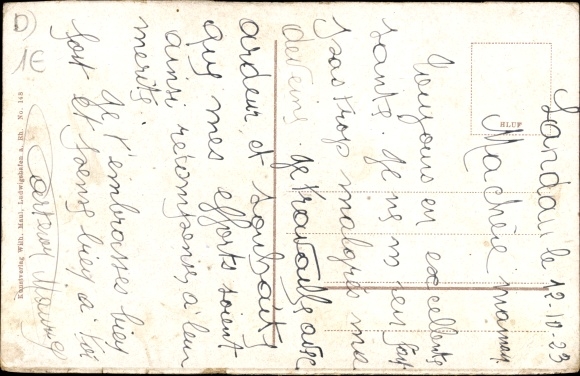 Landau le 12-10-23
Ma chère maman.
Toujours en excellente
santé. Je ne m'en fais
pas trop malgrés ma
déveine. Je travaille avec
ardeur et souhaite
que mes efforts soient
ainsi récompensés à leur
mérite.
Je t'embrasse bien
fort et pense bien à toi
Maurice
HLUP
Kunstverlag Wilh. Maul, Ludwigshafen a. Rh. No. 148
D)
1€